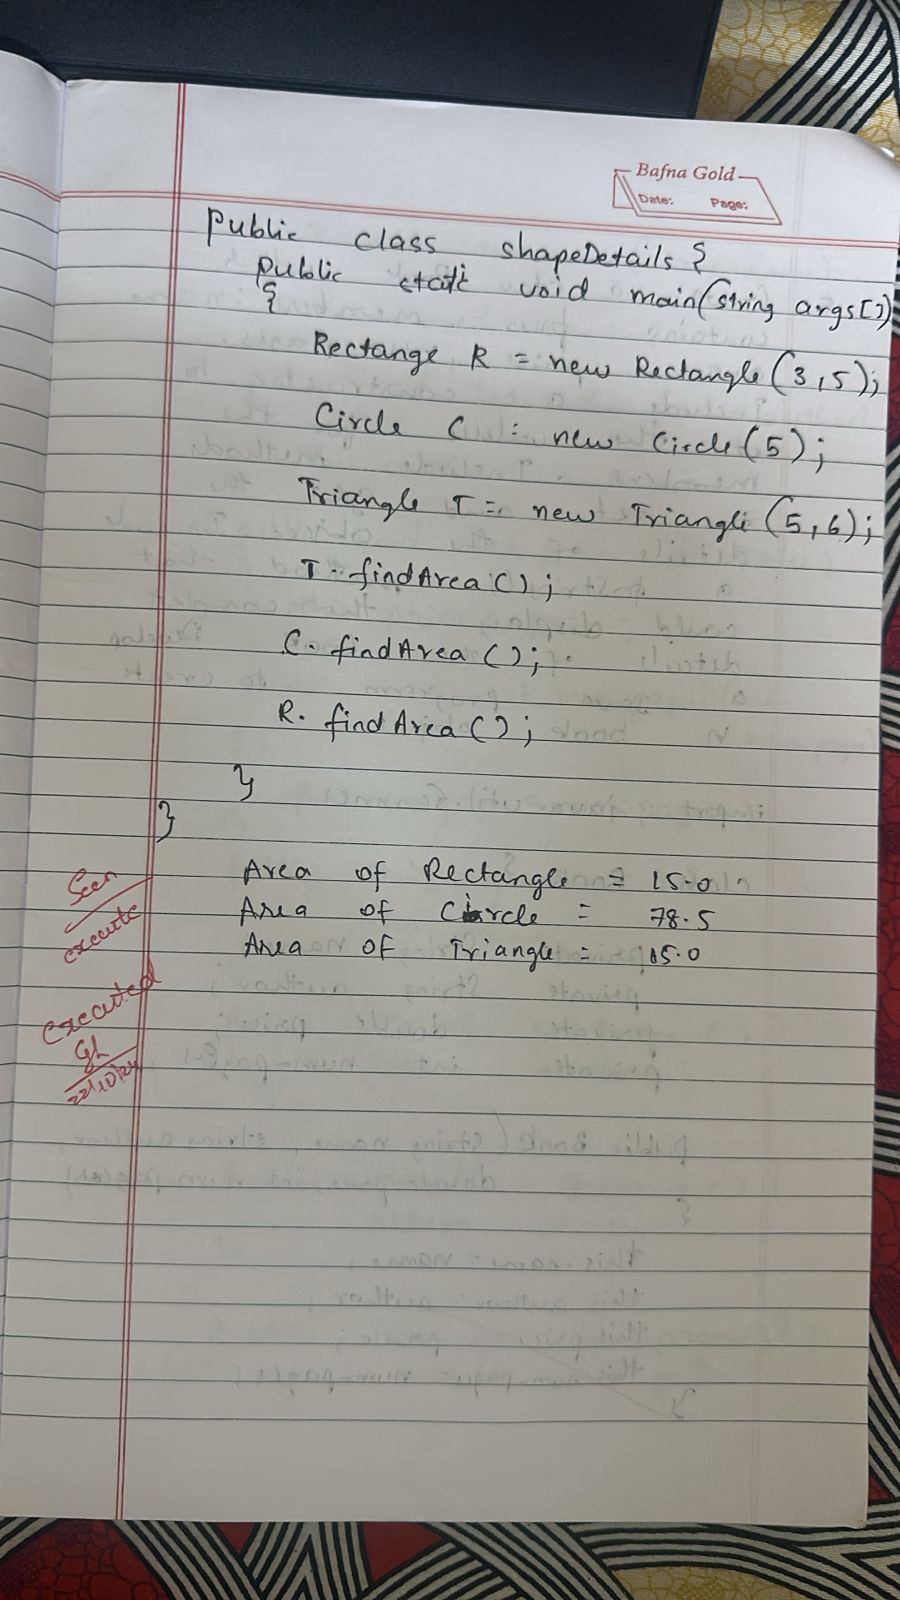 Bafna Gold
Date: Page:
Public class shapeDetails {
public static void main(String args[])
{
Rectange R = new Rectangle (3,5);
Circle C = new Circle (5);
Triangle T = new Triangle (5,6);
T. findArea ();
C. findArea ();
R. findArea ();
}
}
Area of Rectangle = 15.0
Area of Circle = 78.5
Area of Triangle = 15.0
Seen
execute
executed
22/10/24